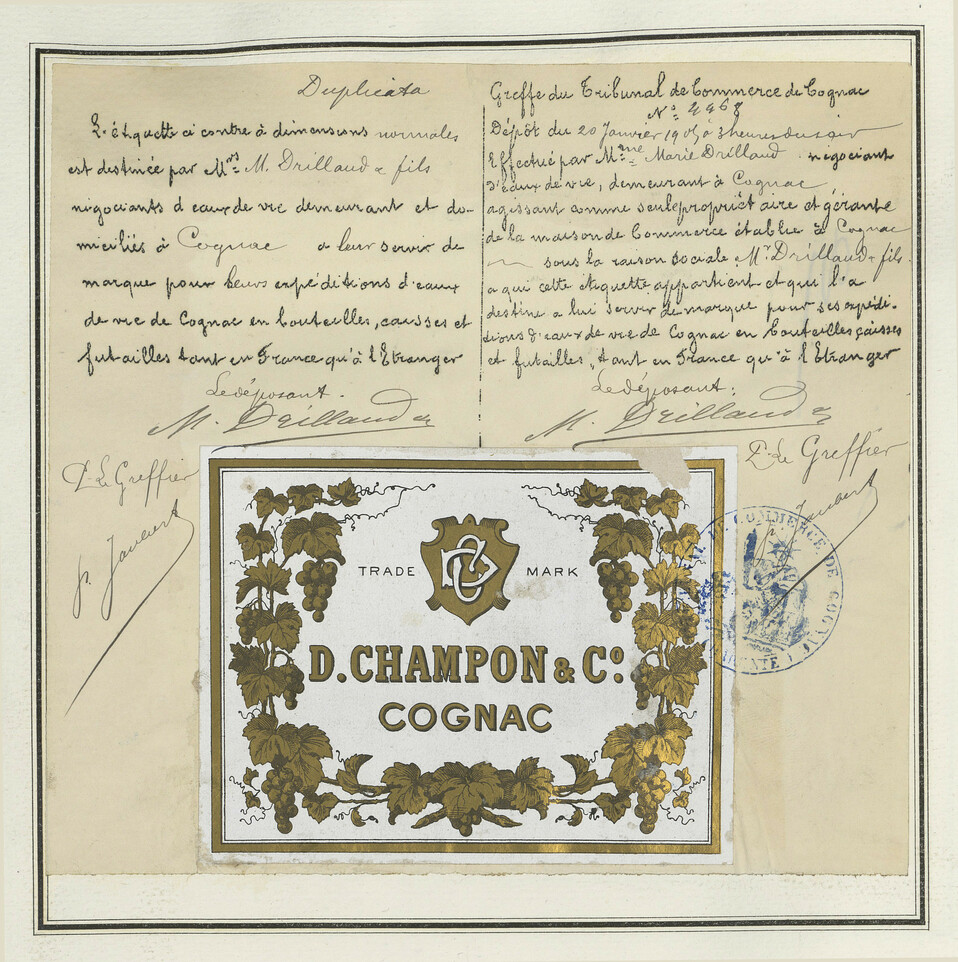 Duplicata
L'étiquette ci contre à dimensions normales
est destinée par Mrs M. Drillaud & fils
négociants d'eaux de vie demeurant et do-
miciliés à Cognac a leur servir de
marque pour leurs expéditions d'eaux
de vie de Cognac en bouteilles, caisses et
futailles tant en France qu'à l'Etranger
Le déposant.
M. Drillaud &
P. Le Greffier
Greffe du Tribunal de Commerce de Cognac
No 4468
Dépôt du 20 Janvier 1905 à 3 heures du soir
Effectué par Mme Marie Drillaud négociant
d'eaux de vie, demeurant à Cognac
agissant comme seule propriétaire et gérante
de la maison de Commerce établie à Cognac
sous la raison sociale Mr Drillaud & fils
a qui cette étiquette appartient et qui l'a
destine a lui servir de marque pour ses expédi-
tions d'eaux de vie de Cognac en bouteilles caisses
et futailles, tant en France qu'à l'Etranger
Le déposant:
M. Drillaud &
P. Le Greffier
TRADE MARK
D. CHAMPON & Co.
COGNAC
DE COMMERCE DE COGNAC